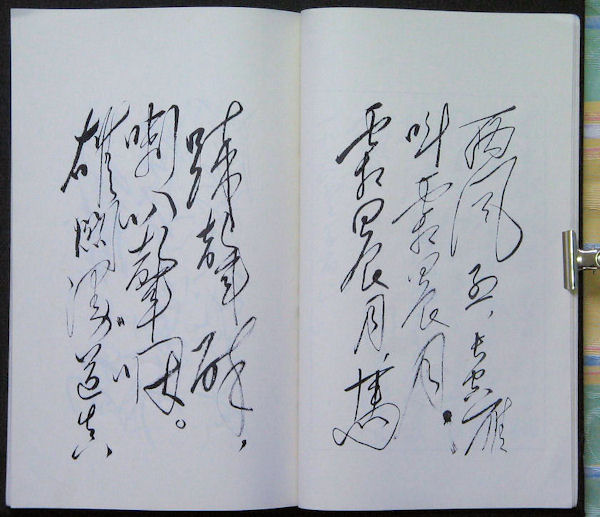 西风烈,长空雁
叫霜晨月。
霜晨月,馬
蹄聲碎,
喇叭聲咽。
雄關漫道真